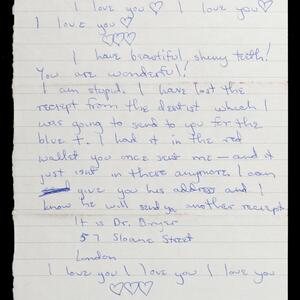 I love you ♡ I love you ♡
I love you ♡
♡♡♡
I have beautiful shiny teeth!
You are wonderful!
I am stupid. I have lost the
reciept from the dentist which I
was going to send to you for the
blue t. I had it in the red
wallet you once sent me — and it
just isnt in there anymore. I can
give you his address and I
know he will send you another reciept
It is Dr. Bryer
57 Sloane Street
London
I love you I love you I love you
♡♡♡